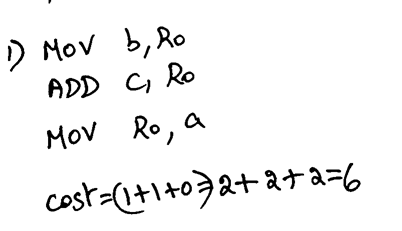 1) MOV b, R0
ADD C, R0
MOV R0, a
cost=(1+1+0)=2+2+2=6